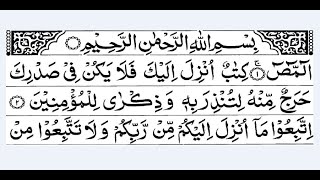 بِسْمِ اللّٰهِ الرَّحْمٰنِ الرَّحِيْمِ
الٓمّٓصٓ ۚ ﴿١﴾ كِتٰبٌ اُنْزِلَ اِلَيْكَ فَلَا يَكُنْ فِيْ صَدْرِكَ
حَرَجٌ مِّنْهُ لِتُنْذِرَ بِهٖ وَذِكْرٰى لِلْمُؤْمِنِيْنَ ﴿٢﴾
اِتَّبِعُوْا مَاۤ اُنْزِلَ اِلَيْكُمْ مِّنْ رَّبِّكُمْ وَلَا تَتَّبِعُوْا مِنْ